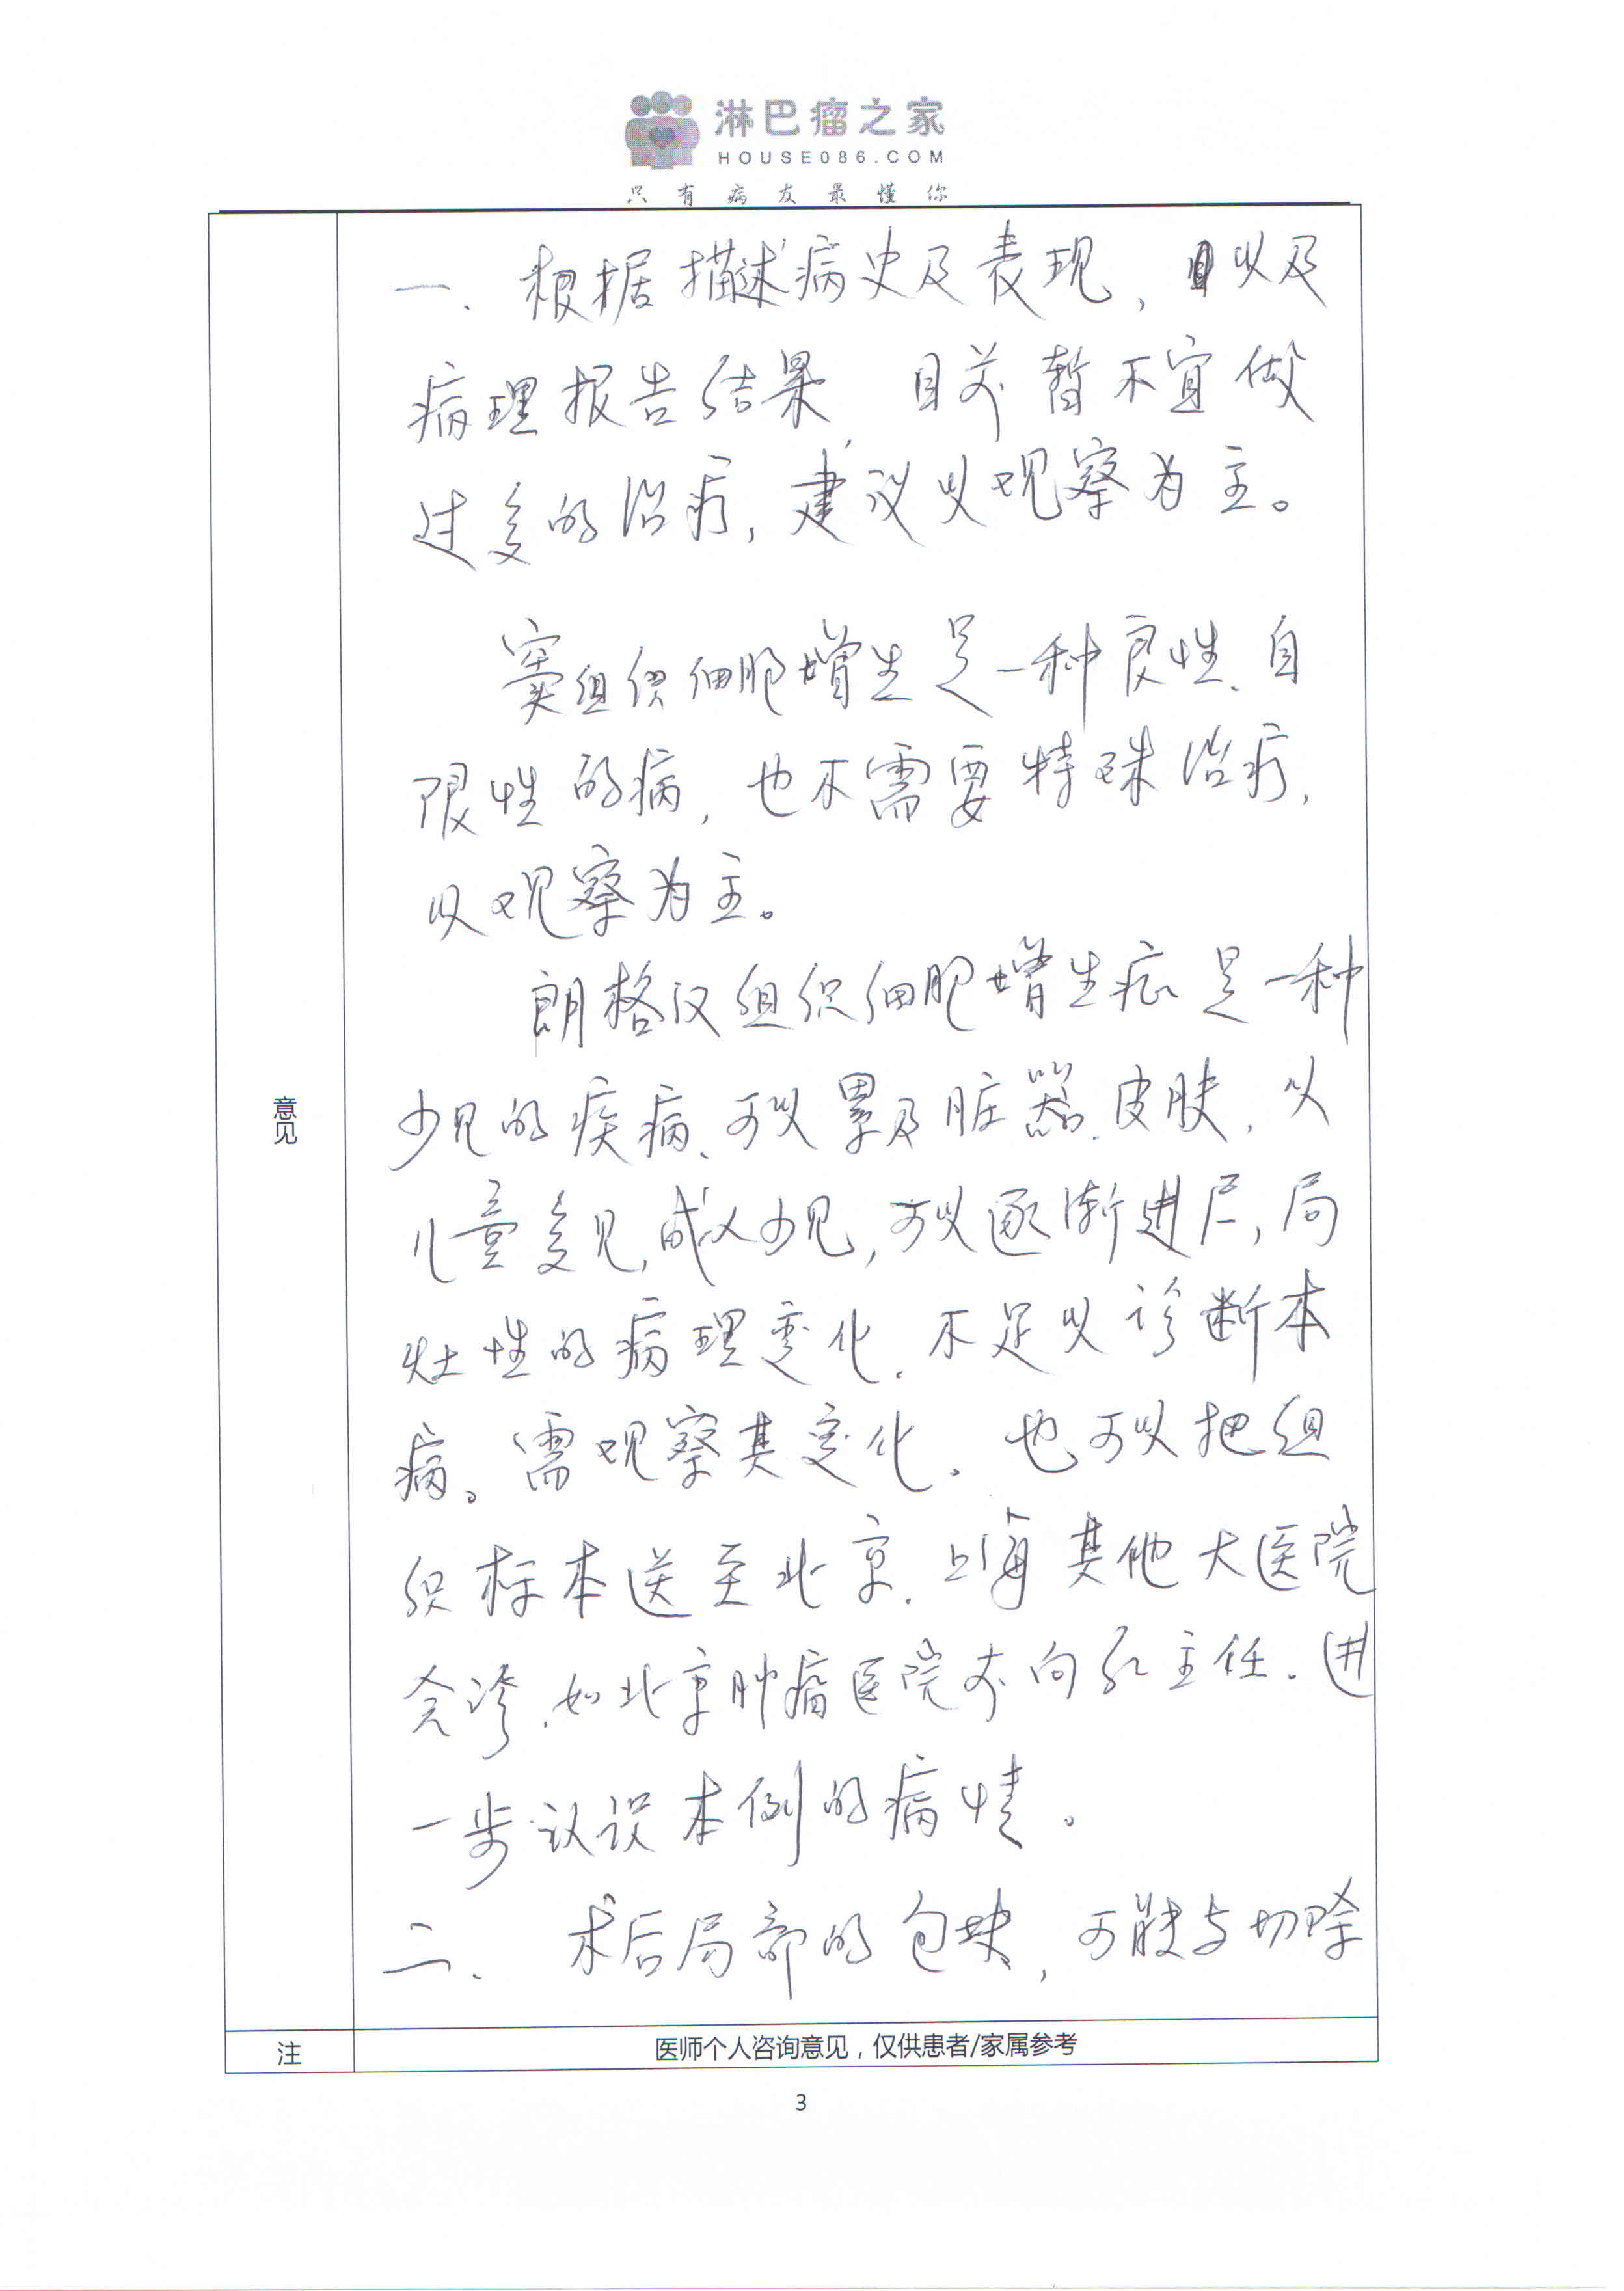 淋巴瘤之家
HOUSE086.COM
只有病友最懂你
一. 根据描述病史及表现, 以及
病理报告结果, 目前暂不宜做
过多的治疗, 建议以观察为主。
窦组织细胞增生是一种良性、自
限性的病, 也不需要特殊治疗,
以观察为主。
朗格汉组织细胞增生症是一种
少见的疾病、可以累及脏器、皮肤, 以
儿童多见, 成人少见, 可以逐渐进展, 局
灶性的病理变化, 不足以诊断本
病。需观察其变化。也可以把组
织标本送至北京、上海其他大医院
会诊, 如北京肿瘤医院 向 主任。进
一步认识本例的病情。
二. 术后局部的包块, 可能与切除
意见
注
医师个人咨询意见，仅供患者/家属参考
3